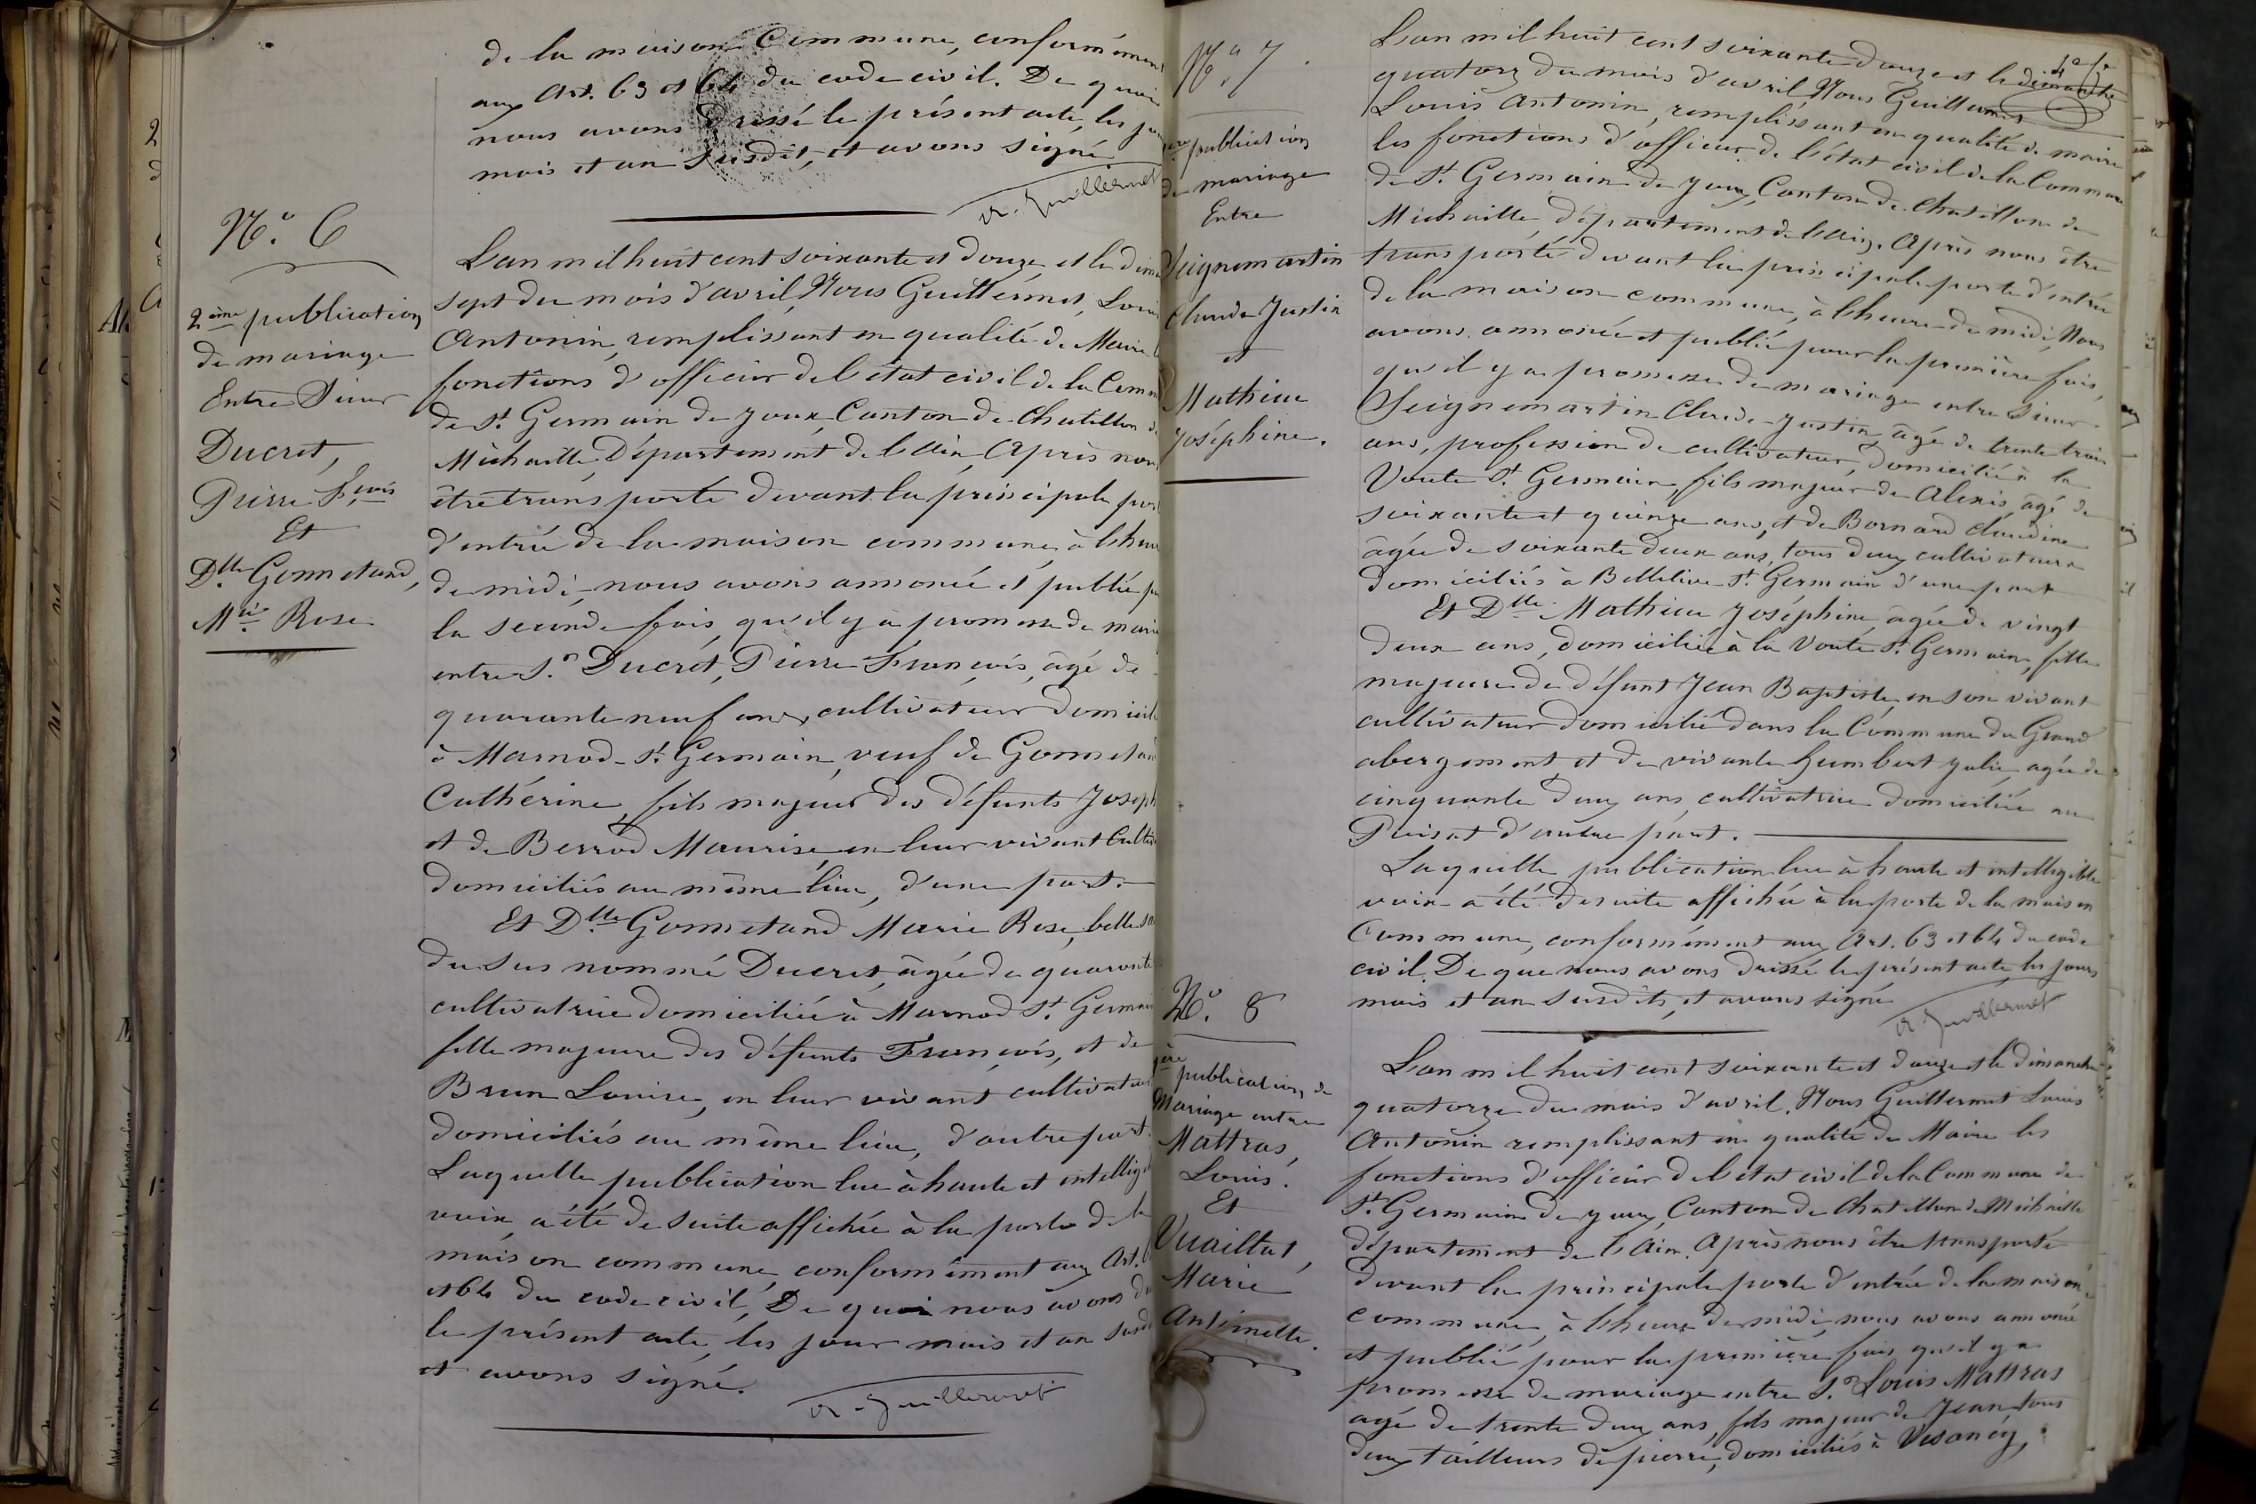 de la maison Commune, conformément
aux Art. 63 et 64 du code civil. De quoi
nous avons dressé le présent acte, les jour
mois et an susdit, et avons signé
A. Guillermet
N.º 6
2ème publication
de mariage
Entre Sieur
Ducret,
Pierre F.çois
Et
D.lle Gonnetand,
M.ie Rose
L'an mil huit cent soixante et douze, et le dim
sept du mois d'avril, Nous Guillermet, Louis
Antonin, remplissant en qualité de Maire l
fonctions d'officier de l'état civil de la Comm
de S.t Germain de Joux Canton de Chatillon d
Michaille Département de l'Ain, Après nous
être transporté devant la principale port
d'entrée de la maison commune, à l'heur
de midi, nous avons annoncé et publié p
la seconde fois, qu'il y a promesse de maria
entre S.r Ducret, Pierre François, âgé de
quarante neuf ans, cultivateur domicili
à Marnod-S.t Germain, veuf de Gonnetand
Cathérine, fils majeur des défunts Joseph
et de Berrod Maurise, en leur vivant Cultiv
domiciliés au même lieu, d'une part.
Et D.lle Gonnetand Marie Rose, belle so
du sus nommé Ducret, âgée de quarante
cultivatrice domiciliée à Marnod S.t Germain
fille majeure des défunts François, et de
Brun Louise, en leur vivant cultivateurs
domiciliés au même lieu, d'autre part.
Laquelle publication lue à haute et intelligi
voix, a été de suite affichée à la porte de la
maison commune, conformément aux Art. 6
et 64 du code civil, De quoi nous avons d
le présent acte, les jour mois et an susd
et avons signé.
A. Guillermet
N.º 7
ère publication
de mariage
Entre
Seignemartin
Claude Justin
et
Mathieu
Joséphine.
L'an mil huit cent soixante douze et le dimanche
quatorz du mois d'avril Nous Guillermet
Louis Antonin, remplissant en qualité de maire
les fonctions d'officier de l'état civil de la Commune
de S.t Germain de Joux, Canton de Chatillon de
Michaille, département de l'Ain. Après nous être
transporté devant la principale porte d'entrée
de la maison commune, à l'heure de midi, Nous
avons annoncé et publié pour la première fois,
qu'il y a promesse de mariage entre sieur
Seignemartin Claude-Justin, âgé de trente trois
ans, profession de cultivateur, domicilié à la
Voute S.t Germain, fils majeur de Alexis, âgé de
soixante et quinze ans, et de Bornard Claudine
âgée de soixante deux ans, tous deux cultivateurs
domiciliés à Bellelive S.t Germain d'une part
Et D.lle Mathieu Joséphine, âgée de vingt
deux ans, domiciliée à la Voute S.t Germain, fille
majeure de défunt Jean Baptiste en son vivant
cultivateur domicilié dans la Commune du Grand
abergement et de vivante Humbert Julie, agée de
cinquante deux ans, cultivatrice domiciliée au
Poisat d'autre part.
Laquelle publication lue à haute et intelligible
voix a été de suite affichée à la porte de la maison
Commune, conformément aux Art. 63 et 64 du code
civil. De que nous avons dressé le présent acte, les jours
mois et an susdits, et avons signé
A. Guillermet
N.º 8
1ère publication de
Mariage entre
Mattras,
Louis.
Et
Vuaillat,
Marie
Antoinette.
L'an mil huit cent soixante et douze et le dimanche
quatorze du mois d'avril. Nous Guillermet Louis
Antonin remplissant en qualité de Maire les
fonctions d'officier de l'état civil de la Commune de
S.t Germain de Joux, Canton de Chatillon de Michaille
département de l'Ain. Après nous être transporté
devant la principale porte d'entrée de la maison
commune, à l'heure de midi, nous avons annoncé
et publié pour la première fois qu'il y a
promesse de mariage entre S.r Louis Mattras
agé de trente deux ans, fils majeur de Jean tous
deux tailleurs de pierre, domiciliés à Vesancy,